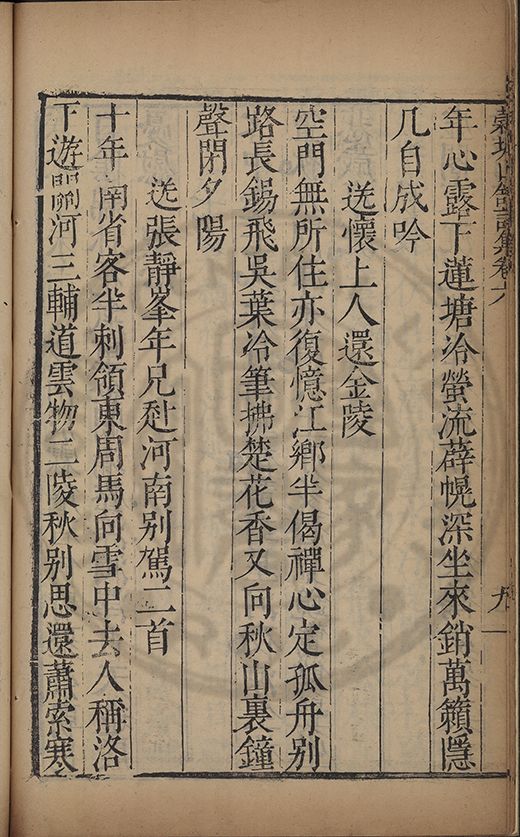 年心露下蓮塘冷螢流薜幌深坐來銷萬籟隱
几自成吟
送懷上人還金陵
空門無所住亦復憶江鄉半偈禪心定孤舟別
路長錫飛吳葉冷筆拂楚花香又向秋山裏鐘
聲閉夕陽
送張靜峯年兄赴河南別駕二首
十年南省客半刺領東周馬向雪中去人稱洛
下遊關河三輔道雲物二陵秋別思還蕭索寒